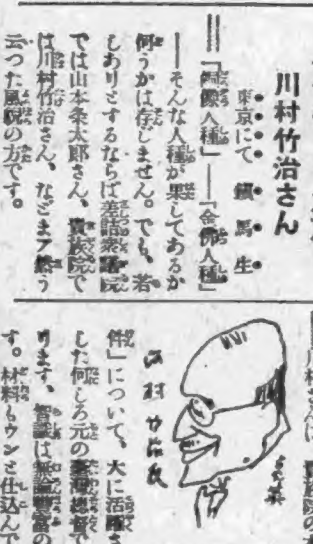 川村竹治さん
東京にて 鎭馬生
「銅像人種」――「金佛人種」
――そんな人種が果してあるか
何うかは存じません。でも、若
しありとするならば差詰衆議院
では山本条太郎さん、貴族院で
は川村竹治さん、などまア然う
云つた風貌の方です。
川村さんは、貴族院の
川村竹治氏
件」について、大に活躍さ
した何しろ元の臺灣總督で
ります、智識は無論豐富の
す。材料もウンと仕込んで